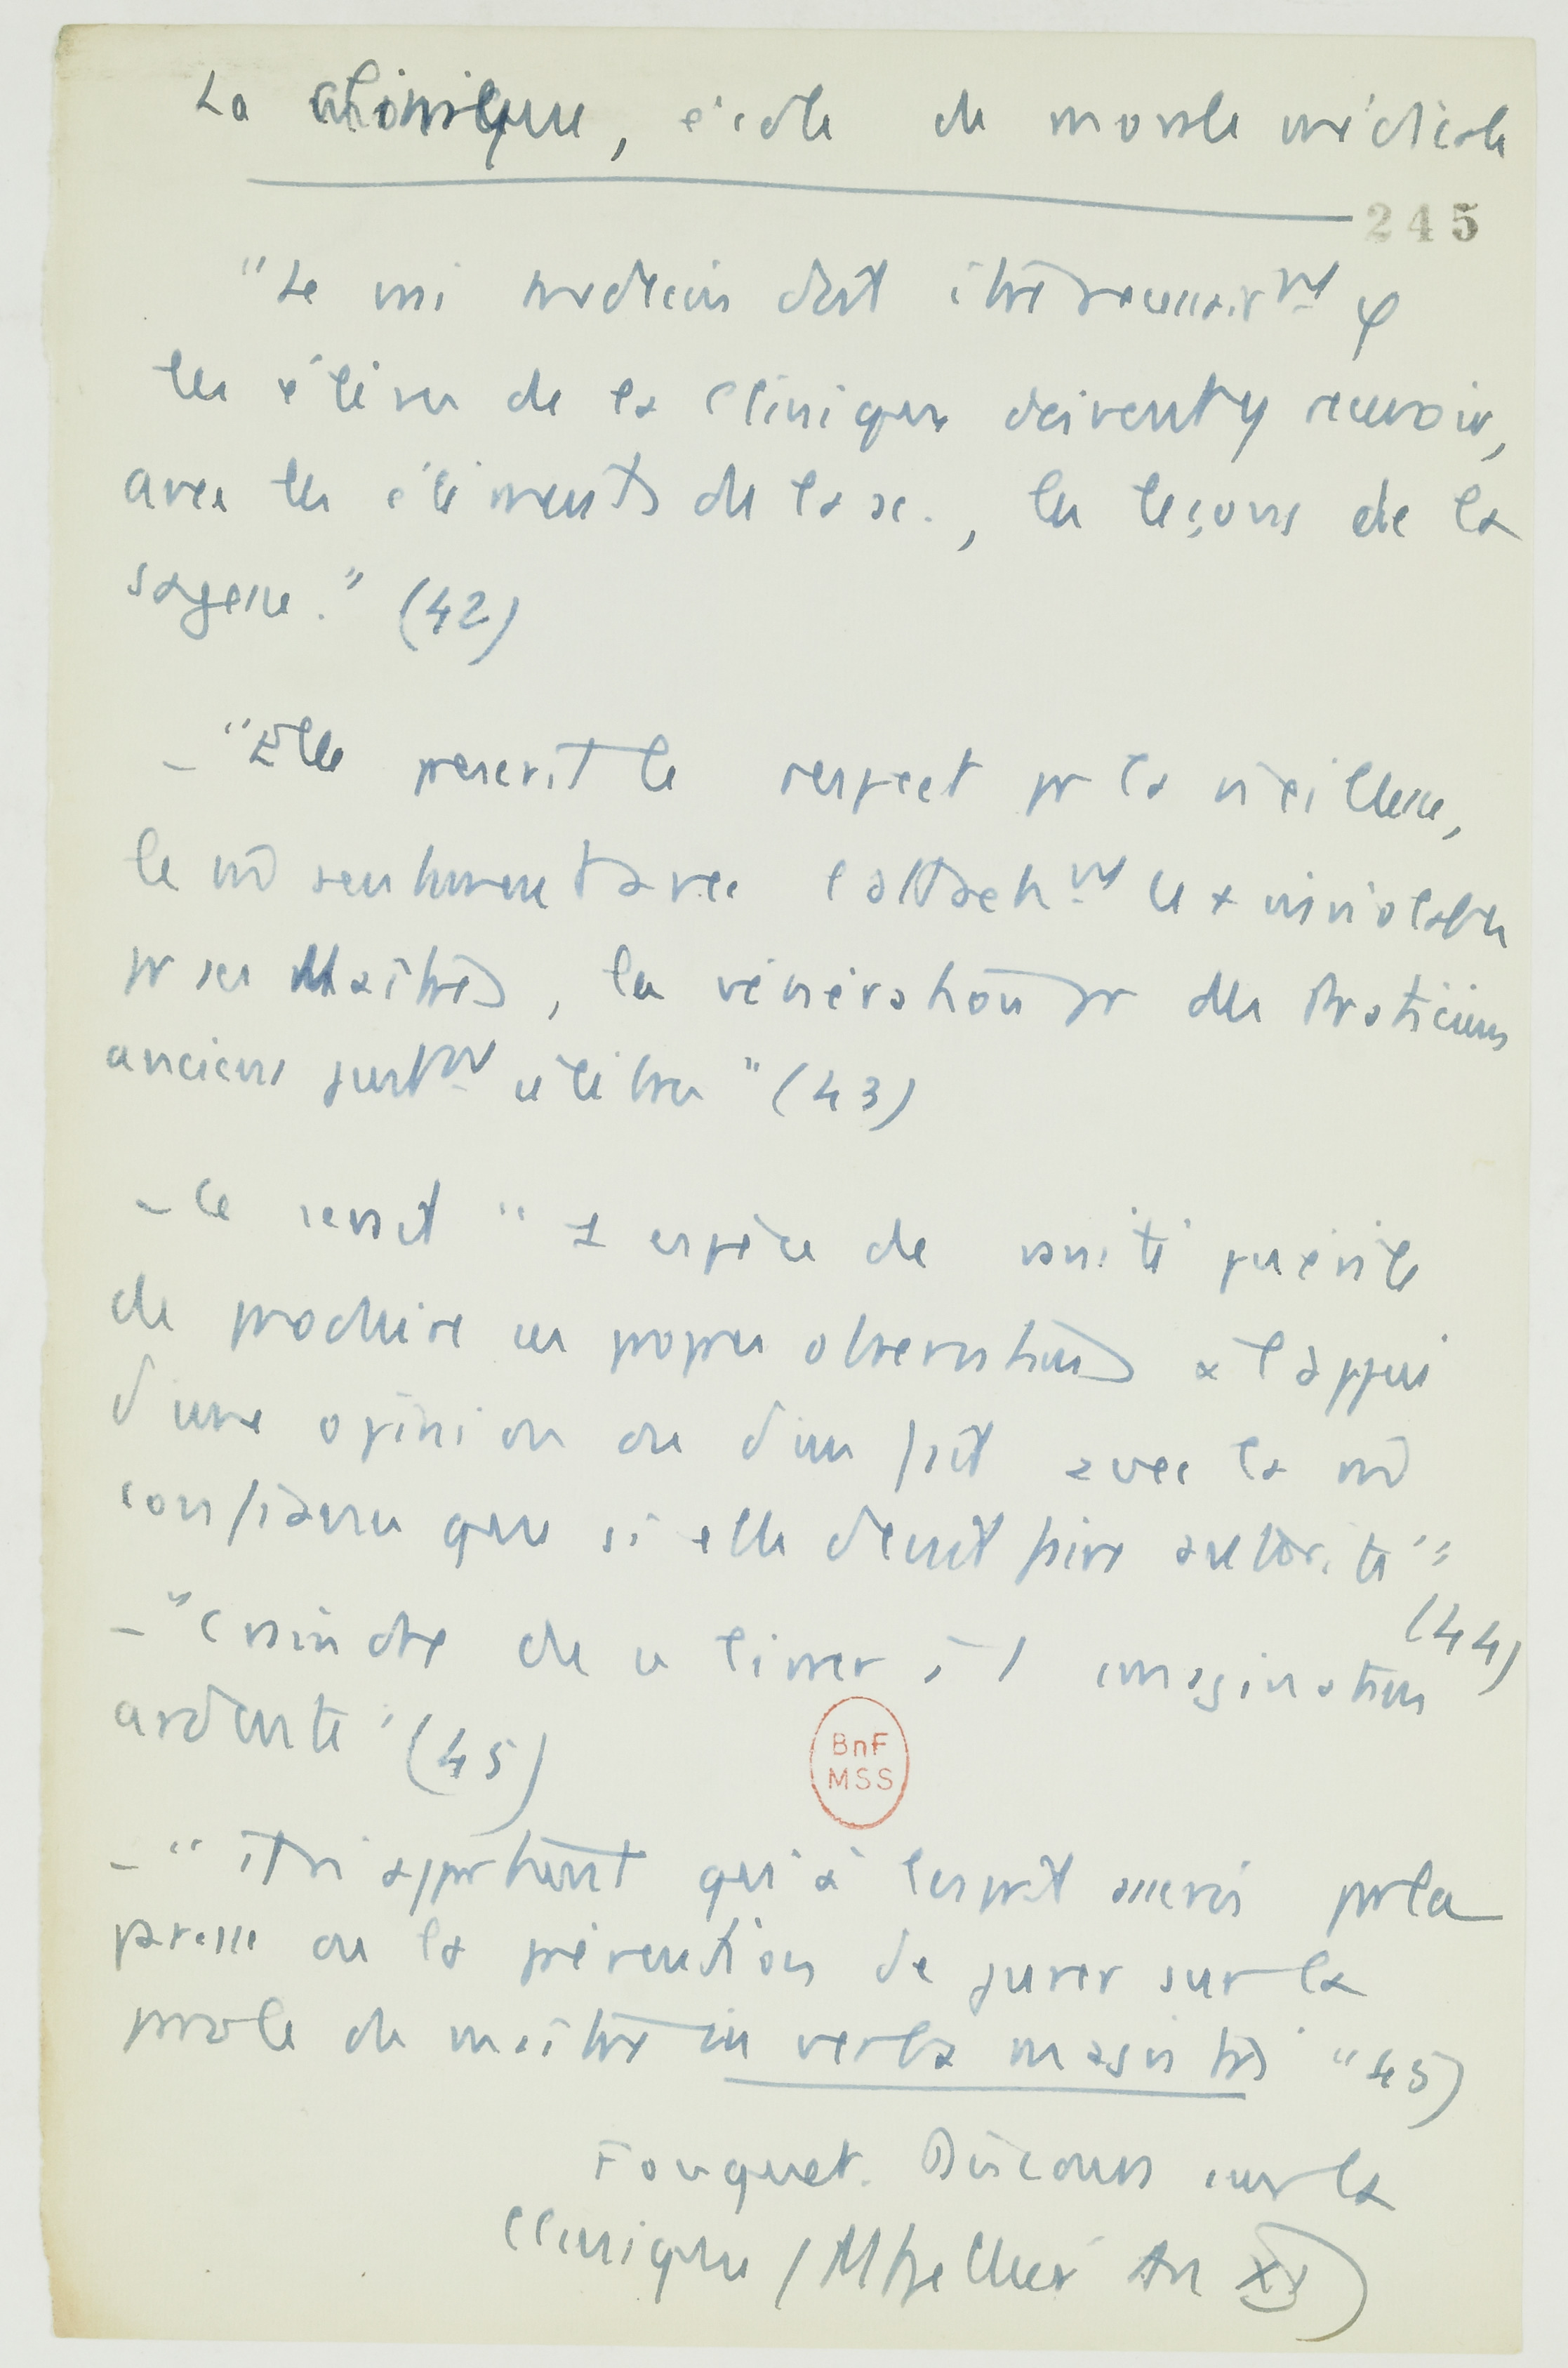 La clinique, école de morale médicale
245
"Le vrai médecin doit être necessairmt φ
les élèves de la clinique doivent y recevoir,
avec les éléments de la sc., les leçons de la
sagesse." (42)
– "Elle prescrit le respect pr la vieillesse,
le m̂ avec l'attachmt le + inviolable
pr ses Maîtres, la vénération pr des Praticiens
anciens justmt célèbres" (43)
– Ce serait " 1 espèce de vanité puérile
de produire ses propres observations à l'appui
d'une opinion ou d'un fait avec la m̂
confiance que si elle devait faire autorité"
(44)
– "Craindre de se livrer à l'imagination
ardente" (45)
– " il n'appartient qu'à l'esprit asservi par la
paresse ou la prévention de jurer sur la
parole du maître in verba magistri" 45)
Fouquet. Discours sur la
Clinique (Mtpellier An XI)
BnF
MSS